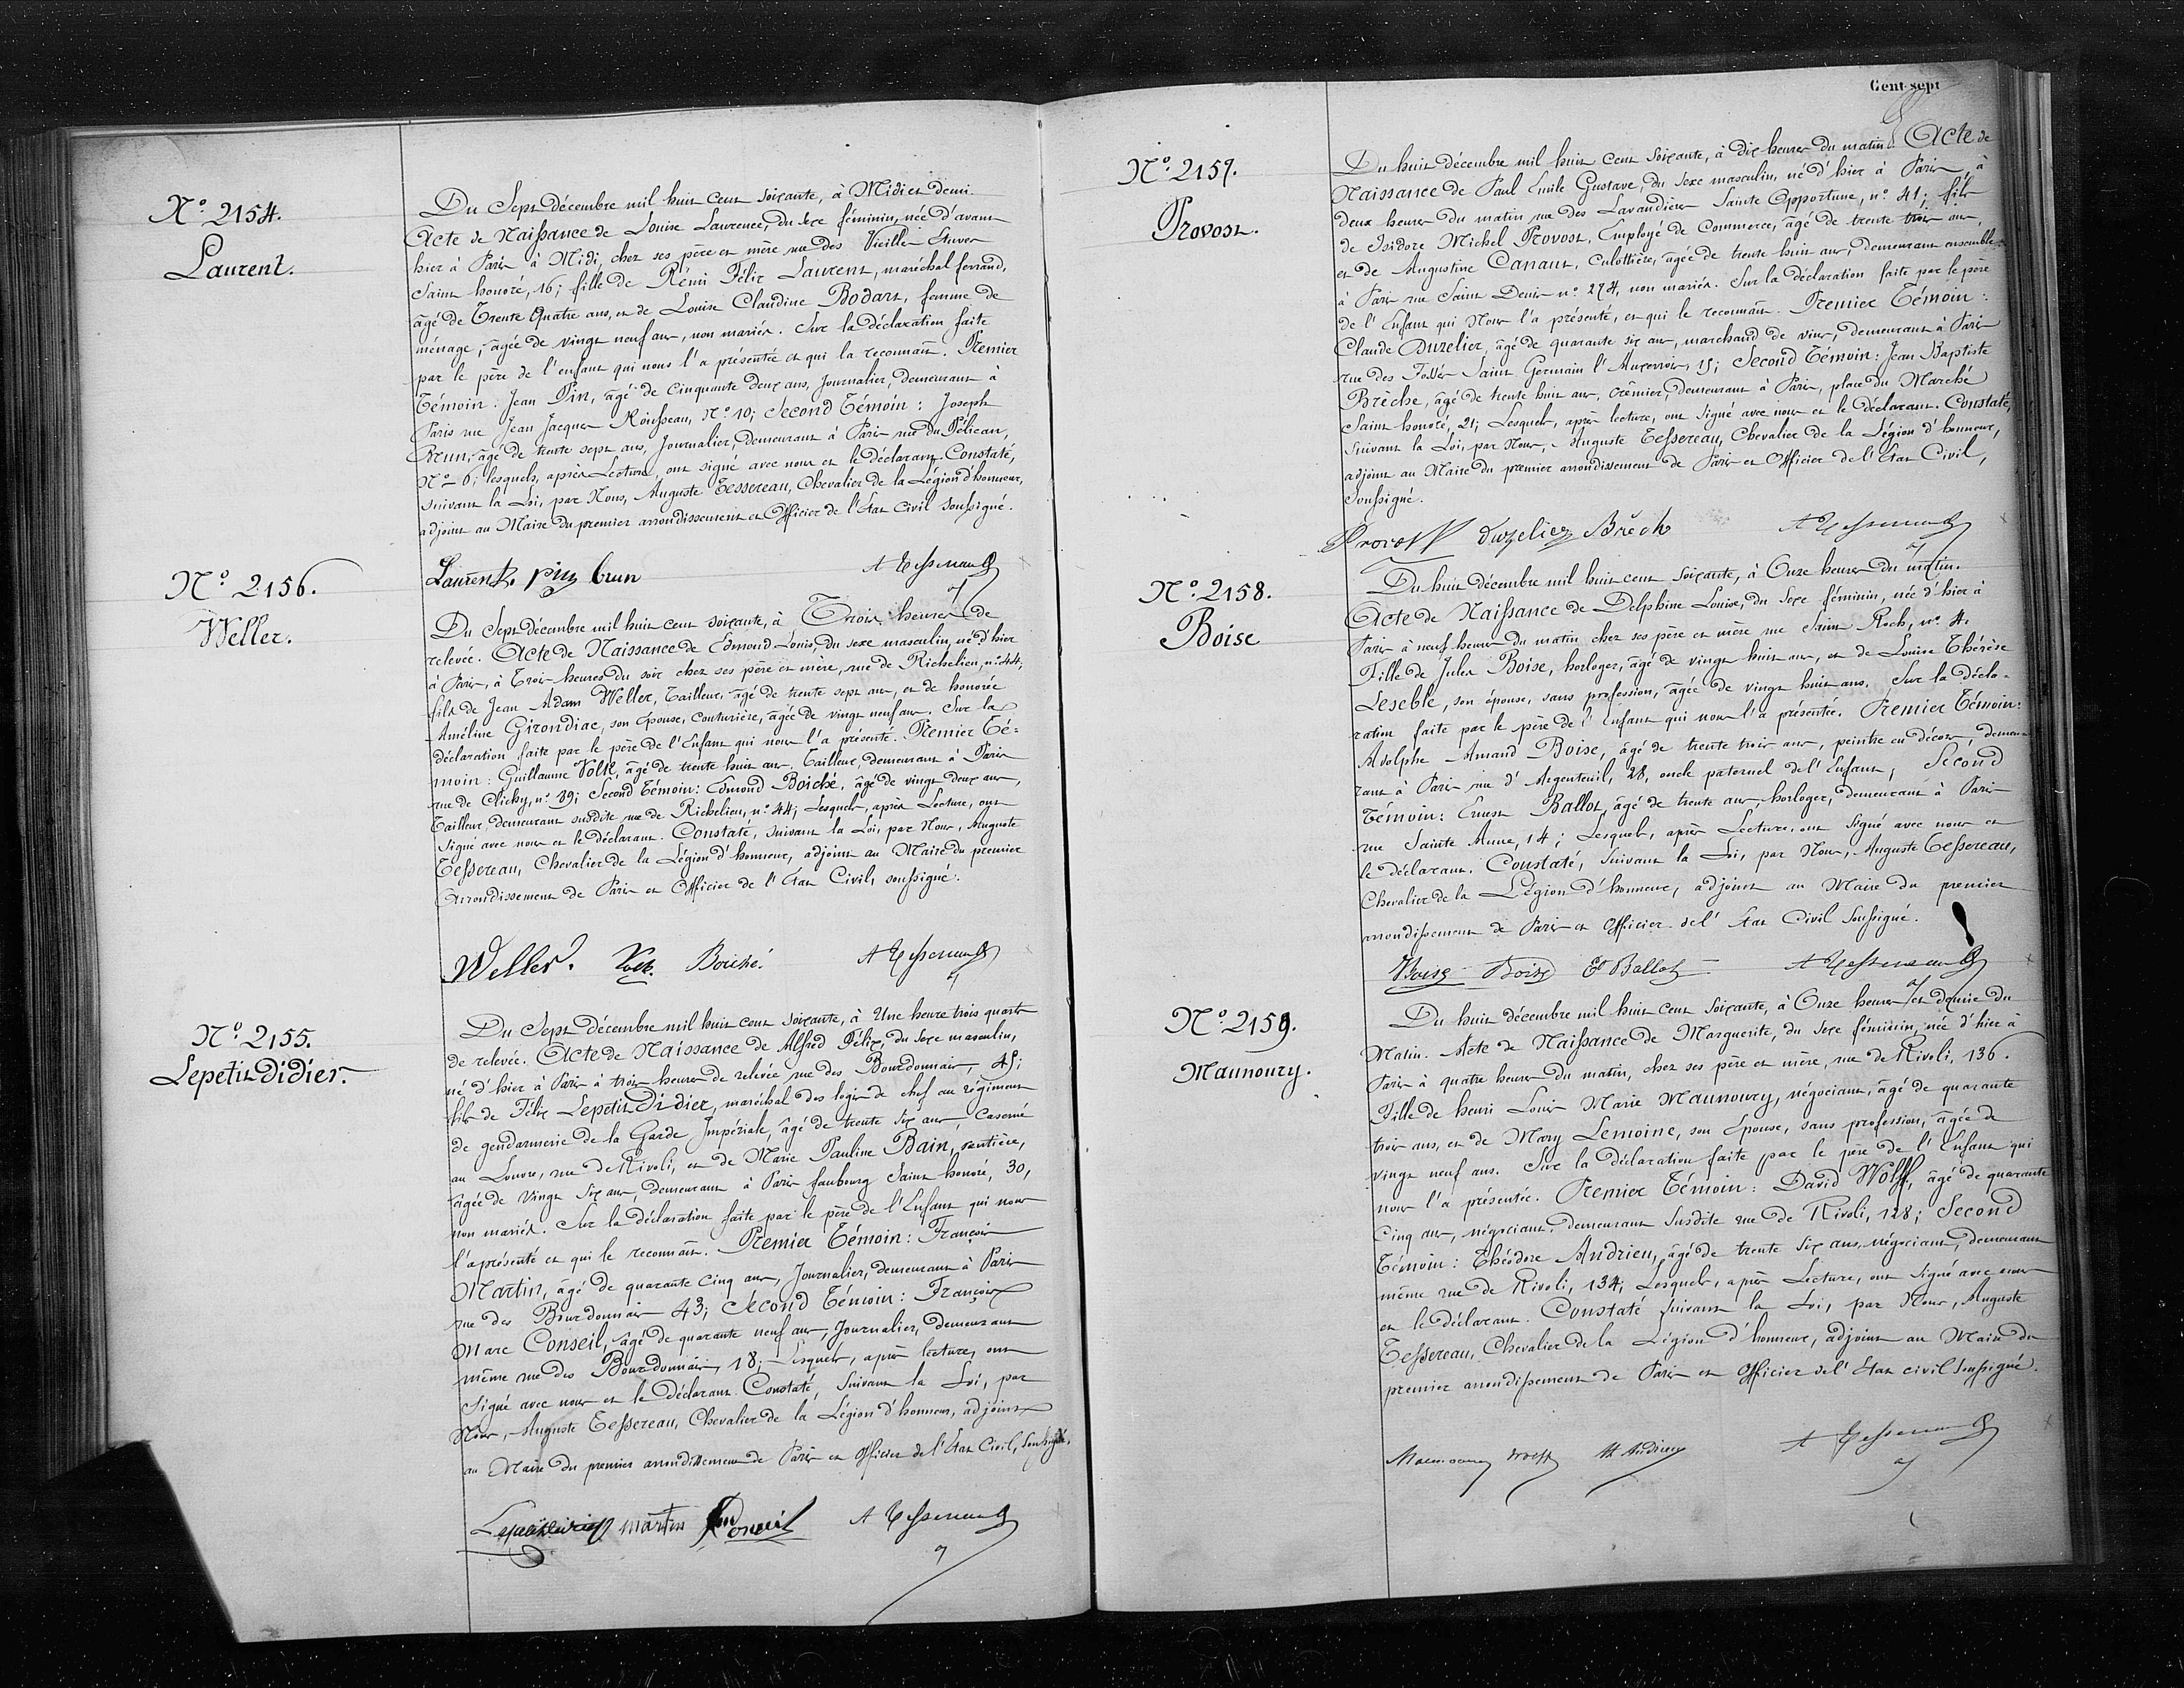 N° 2154.
Laurent.
Du Sept décembre mil huit cent soixante, à Midi et demi
Acte de Naissance de Louise Laurence, du sexe féminin, née d'avant
hier à Paris à Midi, chez ses père et mère rue des Vieilles Etuves
Saint honoré, 16; fille de Rémi Félix Laurent, maréchal ferrand,
âgé de Trente Quatre ans, et de Louise Claudine Bodart, femme de
ménage, âgée de vingt neuf ans, non mariés. Sur la déclaration faite
par le père de l'enfant qui nous l'a présentée et qui la reconnait. Premier
Témoin. Jean Pin, âgé de Cinquante deux ans, Journalier, demeurant à
Paris rue Jean Jacques Rousseau, N° 10; Second Témoin: Joseph
Brun, âgé de trente sept ans, Journalier, demeurant à Paris rue du Pélican,
N° 6; lesquels, après Lecture, ont signé avec nous et le déclarant. Constaté,
suivant la Loi, par Nous, Auguste Tessereau, Chevalier de la Légion d'honneur,
adjoint au Maire du premier arrondissement et Officier de l'Etat Civil soussigné.
Laurent. pin brun A Tessereau
N° 2156.
Weller.
Du Sept décembre mil huit cent soixante, à Trois heures de
relevée. Acte de Naissance de Edmond Louis, du sexe masculin, né d'hier
à Paris, à Trois heures du soir chez ses père et mère, rue de Richelieu, n° 44,
fils de Jean Adam Weller, Tailleur, âgé de trente sept ans, et de honorée
Améline Girondiac, son épouse, couturière, âgée de vingt neuf ans. Sur la
déclaration faite par le père de l'Enfant qui nous l'a présenté. Premier Té=
moin: Guillaume Volk, âgé de trente huit ans. Tailleur, demeurant à Paris
rue de Clichy, n° 39; Second Témoin: Edmond Boiché, âgé de vingt deux ans,
Tailleur, demeurant susdite rue de Richelieu, n° 44; Lesquels, après Lecture, ont
Signé avec nous et le déclarant. Constaté, suivant la Loi, par Nous, Auguste
Tessereau, Chevalier de la Légion d'honneur, adjoint au Maire du premier
Arrondissement de Paris et Officier de l'Etat Civil, soussigné.
Weller. Volk. Boiché. A Tessereau
N° 2155.
Lepetit Didier.
Du Sept décembre mil huit cent soixante, à Une heure trois quarts
de relevée. Acte de Naissance de Alfred Félix, du Sexe masculin,
né d'hier à Paris à trois heures de relevée rue des Bourdonnais, 45;
fils de Félix Lepetit Didier, maréchal des logis de chef au régiment
de gendarmerie de la Garde Impériale, âgé de trente six ans, Caserné
au Louvre, rue de Rivoli, et de Marie Pauline Bain, rentière,
âgée de Vingt Six ans, demeurant à Paris faubourg Saint honoré, 30,
non mariés. Sur la déclaration faite par le père de l'Enfant qui nous
l'a présenté et qui le reconnait. Premier Témoin: François
Martin, âgé de quarante cinq ans, Journalier, demeurant à Paris
rue des Bourdonnais 43; Second Témoin: François
Marc Conseil, âgé de quarante neuf ans, Journalier, demeurant
même rue des Bourdonnais, 18; Lesquels, après lecture, ont
Signé avec nous et le déclarant. Constaté, suivant la Loi, par
Nous, Auguste Tessereau, Chevalier de la Légion d'honneur, adjoint
au Maire du premier arrondissement de Paris et Officier de l'Etat Civil, soussigné.
Lepetitdidier martin Conseil A Tessereau
Cent-sept
N° 2157.
Provost.
Du huit décembre mil huit cent soixante, à dix heures du matin. Acte de
Naissance de Paul Emile Gustave, du sexe masculin, né d'hier à Paris, à
deux heures du matin rue des Lavandières Sainte Opportune, n° 41; fils
de Isidore Michel Provost, Employé de Commerce, âgé de trente trois ans,
et de Augustine Canaut, Culottière, âgée de trente huit ans, demeurant ensemble
à Paris rue Saint Denis n° 274, non mariés. Sur la déclaration faite par le père
de l'Enfant qui Nous l'a présenté, et qui le reconnait. Premier Témoin:
Claude Duzelier, âgé de quarante six ans, marchand de vins, demeurant à Paris
rue des Fossés Saint Germain l'Auxerrois, 15; Second Témoin: Jean Baptiste
Brèche, âgé de trente huit ans, Crêmier, demeurant à Paris, place du Marché
Saint honoré, 21; Lesquels, après lecture, ont signé avec nous et le déclarant. Constaté,
suivant la Loi, par Nous, Auguste Tessereau, Chevalier de la Légion d'honneur,
adjoint au Maire du premier arrondissement de Paris et Officier de l'Etat Civil,
Soussigné.
Provost Duzelier Brèch A Tessereau
N° 2158.
Boise
Du huit décembre mil huit cent soixante, à Onze heures du matin.
Acte de Naissance de Delphine Louise, du sexe féminin, née d'hier à
Paris à neuf heures du matin chez ses père et mère rue Saint Roch, n° 4.
Fille de Jules Boise, horloger, âgé de vingt huit ans, et de Louise Thérèse
Leseble, son épouse, sans profession, âgée de vingt huit ans. Sur la décla-
ration faite par le père de l'Enfant qui nous l'a présentée. Premier Témoin:
Adolphe Amand Boise, âgé de trente trois ans, peintre en décors, demeu-
rant à Paris rue d'Argenteuil, 28, oncle paternel de l'Enfant; Second
Témoin: Ernest Ballot, âgé de trente ans, horloger, demeurant à Paris
rue Sainte Anne, 14; Lesquels, après Lecture, ont signé avec nous et
le déclarant. Constaté, suivant la Loi, par Nous, Auguste Tessereau,
Chevalier de la Légion d'honneur, adjoint au Maire du premier
arrondissement de Paris et Officier de l'Etat Civil soussigné.
Boise Boise Et Ballot A Tessereau
N° 2159.
Maunoury.
Du huit décembre mil huit cent soixante, à Onze heures et demie du
Matin. Acte de Naissance de Marguerite, du sexe féminin, née d'hier à
Paris à quatre heures du matin, chez ses père et mère, rue de Rivoli, 136.
Fille de henri Louis Marie Maunoury, négociant, âgé de quarante
trois ans, et de Mary Lemoine, son Epouse, sans profession, âgée de
vingt neuf ans. Sur la déclaration faite par le père de l'Enfant qui
nous l'a présentée. Premier Témoin: David Wolff, âgé de quarante
Cinq ans, négociant, demeurant susdite rue de Rivoli, 128; Second
Témoin: Théodore Andrieu, âgé de trente six ans, négociant, demeurant
même rue de Rivoli, 134; Lesquels, après Lecture, ont signé avec nous
et le déclarant. Constaté suivant la Loi, par Nous, Auguste
Tessereau, Chevalier de la Légion d'honneur, adjoint au Maire du
premier arrondissement de Paris et Officier de l'Etat civil soussigné.
Maunoury Wolff Th Andrieu A Tessereau